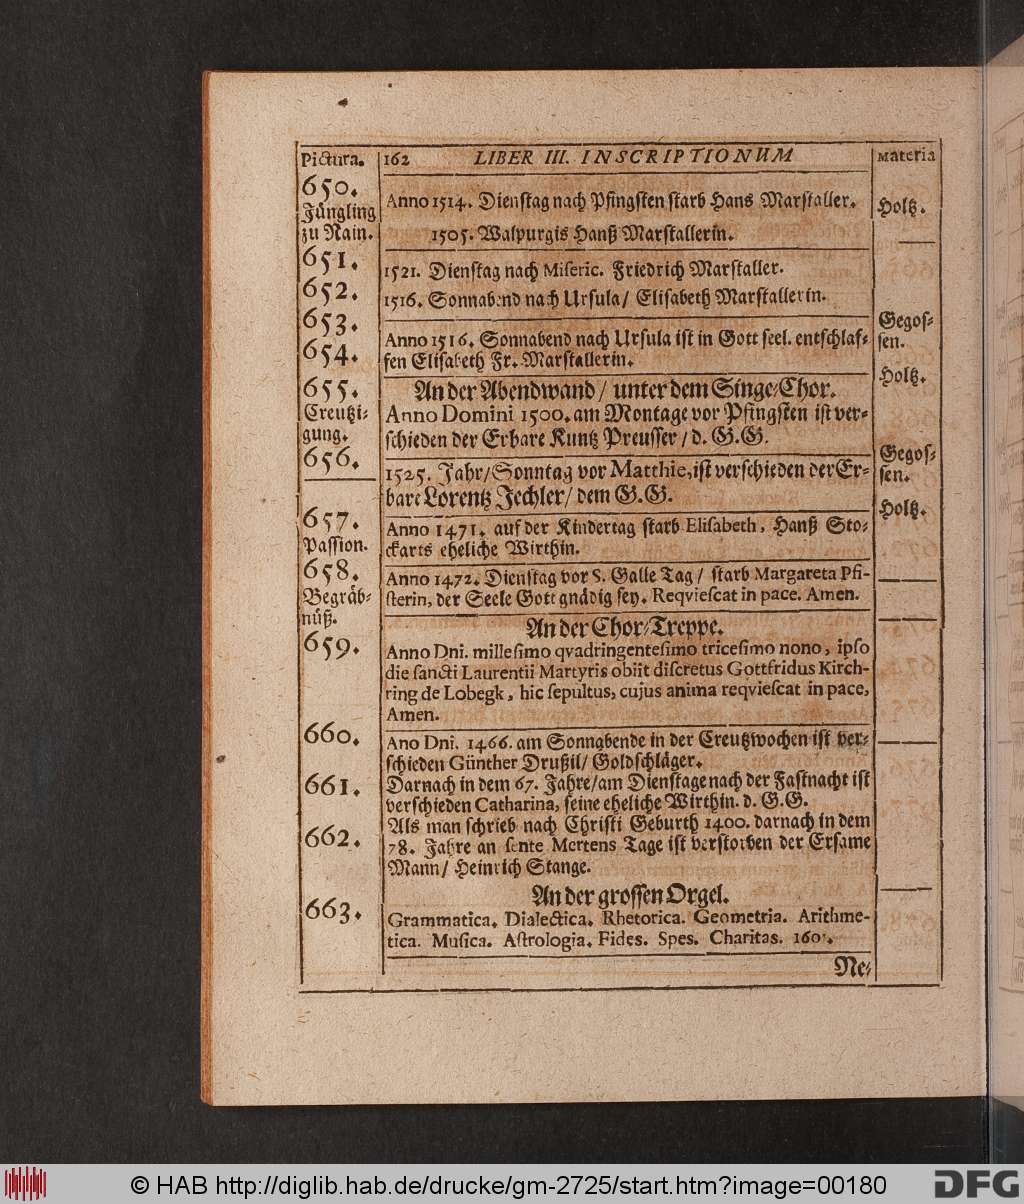 Pictura. 162 LIBER III. INSCRIPTIONUM Materia
650.
Jüngling
zu Nain.
Anno 1514. Dienstag nach Pfingsten starb Hans Marstaller.
1505. Walpurgis Hanß Marstallerin.
Holtz.
651.
1521. Dienstag nach Miseric. Friedrich Marstaller.
652.
1516. Sonnabend nach Ursula/ Elisabeth Marstallerin.
653.
654.
Anno 1516. Sonnabend nach Ursula ist in Gott seel. entschlaf-
fen Elisabeth Fr. Marstallerin.
Gegos-
sen.
655.
Creutzi-
gung.
An der Abendwand/ unter dem Singe-Chor.
Anno Domini 1500. am Montage vor Pfingsten ist ver-
schieden der Erbare Kuntz Preusser/ d. G. G.
Holtz.
656.
1525. Jahr/ Sonntag vor Matthie, ist verschieden der Er-
bare Lorentz Jechler/ dem G. G.
Gegos-
sen.
657.
Passion.
Anno 1471. auf der Kindertag starb Elisabeth, Hanß Sto-
ckarts eheliche Wirthin.
Holtz.
658.
Begräb-
nüß.
Anno 1472. Dienstag vor S. Galle Tag/ starb Margareta Pfi-
sterin, der Seele Gott gnädig sey. Reqviescat in pace. Amen.
An der Chor-Treppe.
659.
Anno Dni. millesimo qvadringentesimo tricesimo nono, ipso
die sancti Laurentii Martyris obiit discretus Gottfridus Kirch-
ring de Lobegk, hic sepultus, cujus anima reqviescat in pace,
Amen.
660.
Ano Dni. 1466. am Sonnabende in der Creutzwochen ist ver-
schieden Günther Drußil/ Goldschläger.
661.
Darnach in dem 67. Jahre/ am Dienstage nach der Fastnacht ist
verschieden Catharina, seine eheliche Wirthin. d. G. G.
662.
Als man schrieb nach Christi Geburth 1400. darnach in dem
78. Jahre an sente Mertens Tage ist verstorben der Ersame
Mann/ Heinrich Stange.
An der grossen Orgel.
663.
Grammatica. Dialectica. Rhetorica. Geometria. Arithme-
tica. Musica. Astrologia. Fides. Spes. Charitas.
Ne-
© HAB http://diglib.hab.de/drucke/gm-2725/start.htm?image=00180
DFG